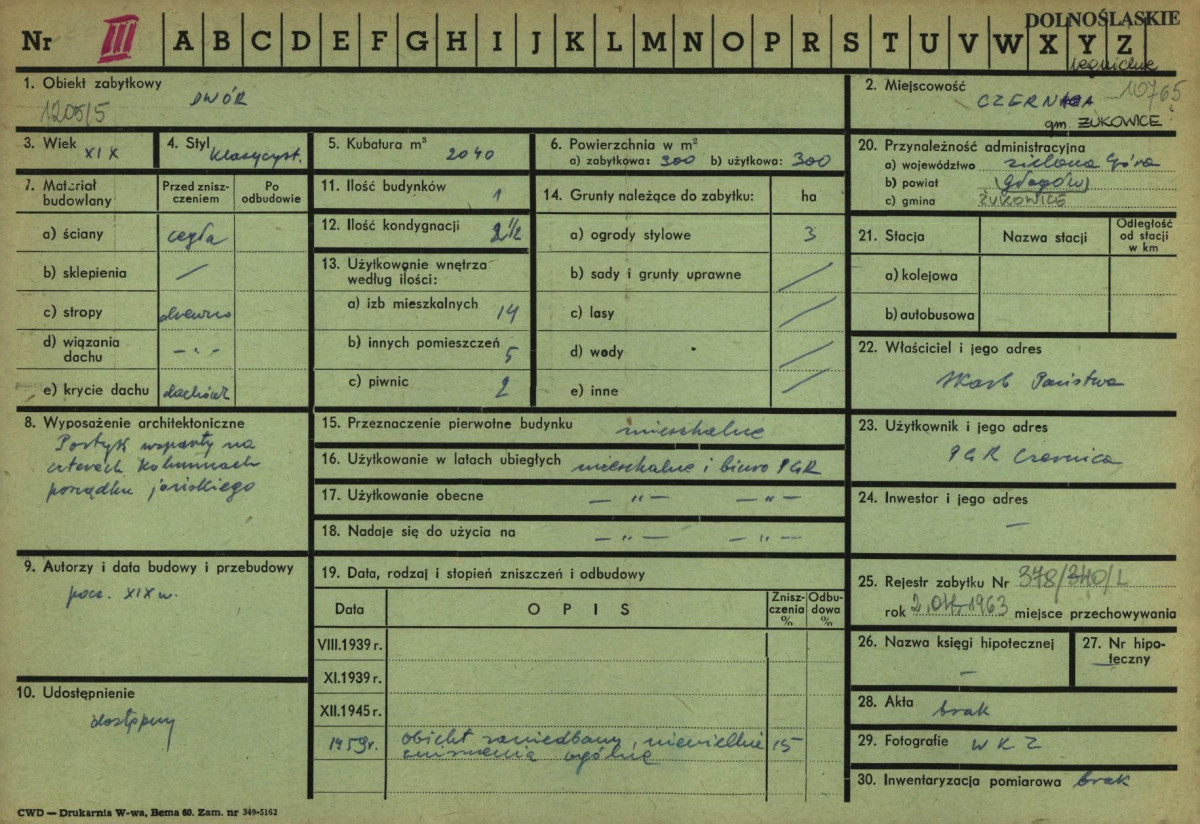 DOLNOŚLĄSKIE
Nr III A B C D E F G H I J K L M N O P R S T U V W X Y Z
1. Obiekt zabytkowy
DWÓR
1205/5
2. Miejscowość
10765
gm. ŻUKOWICE
3. Wiek XIX
4. Styl klasycyst.
5. Kubatura m³ 2040
6. Powierzchnia w m²
a) zabytkowa: 300 b) użytkowa: 300
20. Przynależność administracyjna
a) województwo zielona Góra
b) powiat (głogów)
c) gmina ŻUKOWICE
7. Materiał budowlany
Przed zniszczeniem
Po odbudowie
a) ściany cegła
b) sklepienia /
c) stropy drewno
d) wiązania dachu - " -
e) krycie dachu dachówk
11. Ilość budynków 1
12. Ilość kondygnacji 2 1/2
13. Użytkowanie wnętrza
według ilości:
a) izb mieszkalnych 14
b) innych pomieszczeń 5
c) piwnic 2
14. Grunty należące do zabytku: ha
a) ogrody stylowe 3
b) sady i grunty uprawne /
c) lasy /
d) wody /
e) inne /
21. Stacja
Nazwa stacji
Odległość od stacji w km
a) kolejowa
b) autobusowa
22. Właściciel i jego adres
Skarb Państwa
8. Wyposażenie architektoniczne
Portyk wsparty na
czterech kolumnach
porządku jońskiego
15. Przeznaczenie pierwotne budynku mieszkalne
16. Użytkowanie w latach ubiegłych mieszkalne i biuro PGR
17. Użytkowanie obecne — " — — " —
18. Nadaje się do użycia na — " — — " —
23. Użytkownik i jego adres
PGR Czernica
24. Inwestor i jego adres
—
9. Autorzy i data budowy i przebudowy
pocz. XIX w.
10. Udostępnienie
dostępny
19. Data, rodzaj i stopień zniszczeń i odbudowy
Data
OPIS
Zniszczenia %
Odbudowa %
VIII.1939 r.
XI.1939 r.
XII.1945 r.
1959r. obiekt zaniedbany, niewielkie 15
zniszczenia ogólne
25. Rejestr zabytku Nr 378/340/L
rok 1963 miejsce przechowywania
26. Nazwa księgi hipotecznej
—
27. Nr hipoteczny
—
28. Akta brak
29. Fotografie WKZ
30. Inwentaryzacja pomiarowa brak
CWD — Drukarnia W-wa, Bema 60. Zam. nr 349-5162